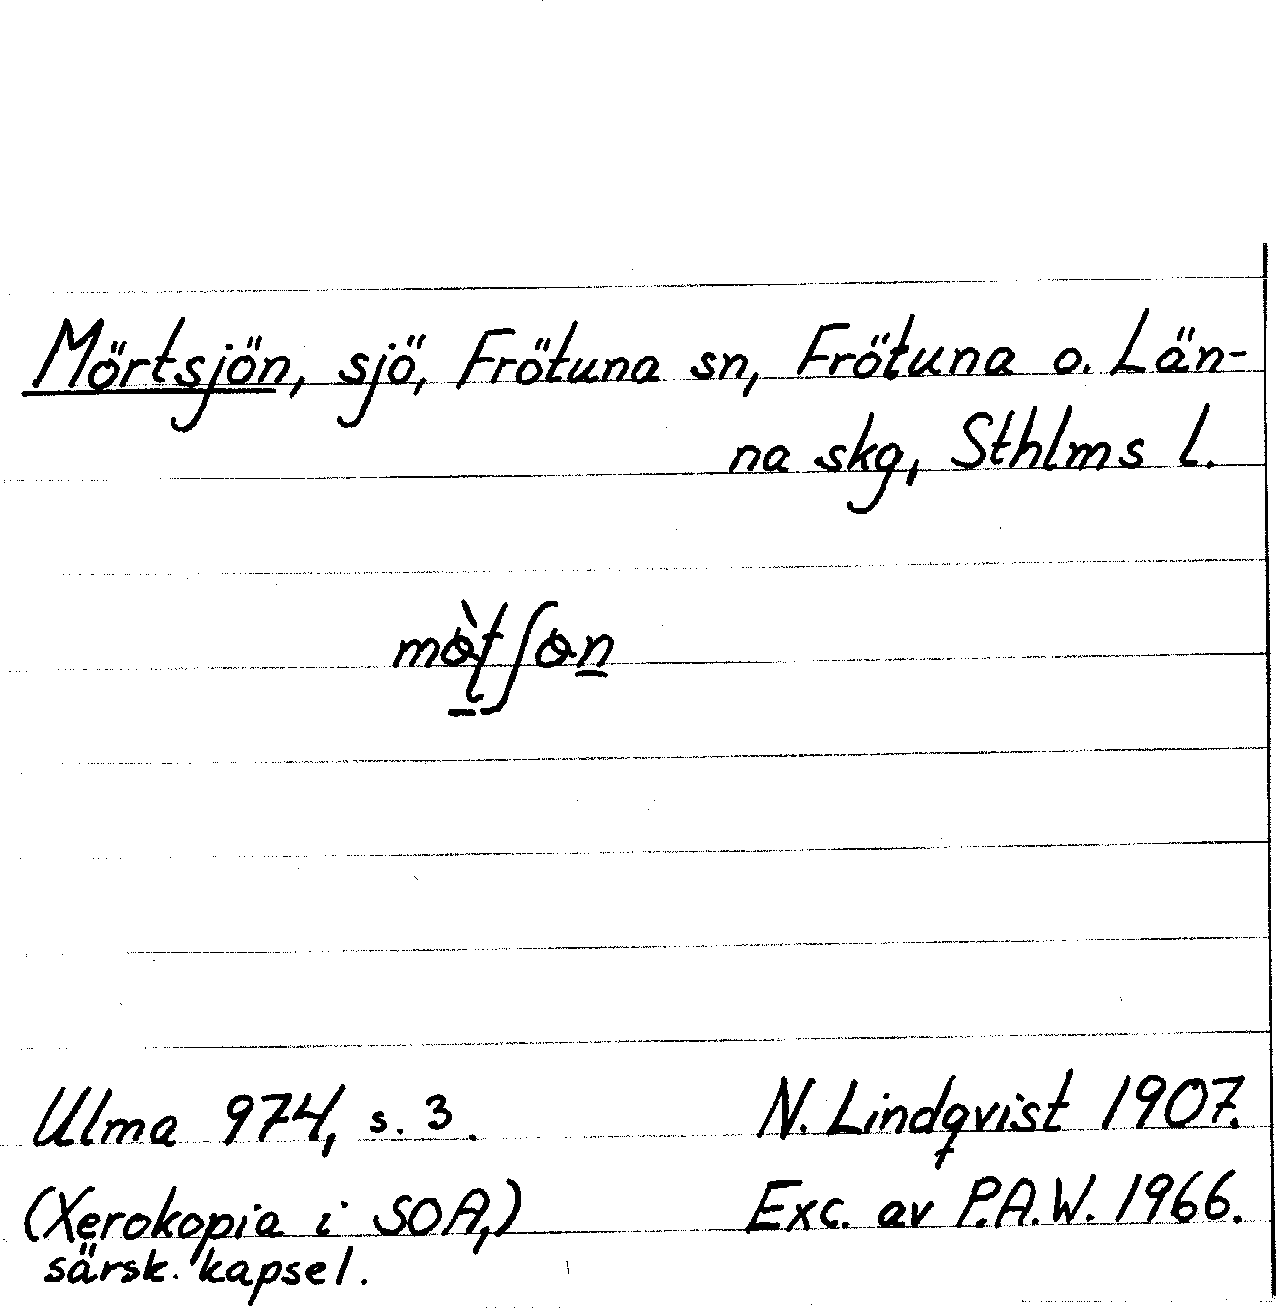 Mörtsjön, sjö, Frötuna sn, Frötuna o. Län-
na skg, Sthlms l.
Ulma 974, s. 3.
N. Lindqvist 1907.
(Xerokopia i SOA,)
särsk. kapsel.
Exc. av P.A.W. 1966.